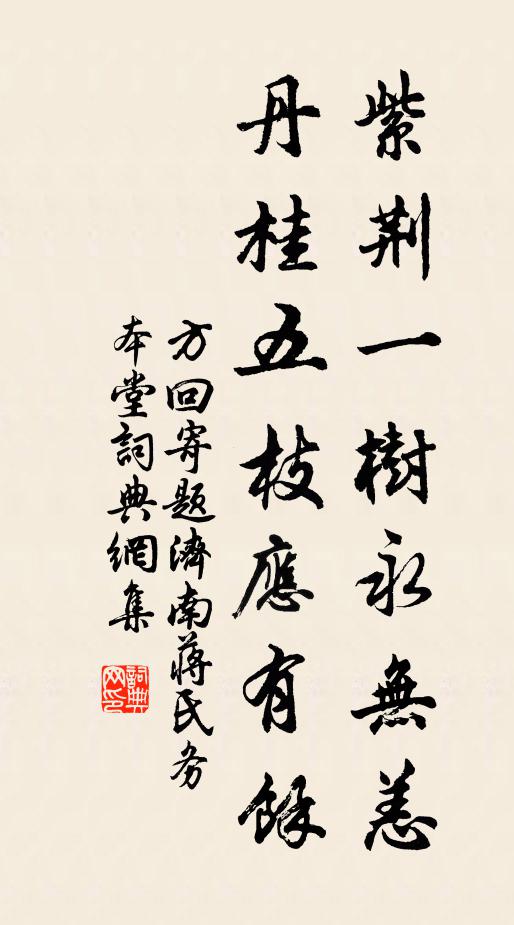 紫荆一樹永無恙
丹桂五枝應有餘
方回寄题濟南蔣氏务
本堂詞典網集
詞典
网印